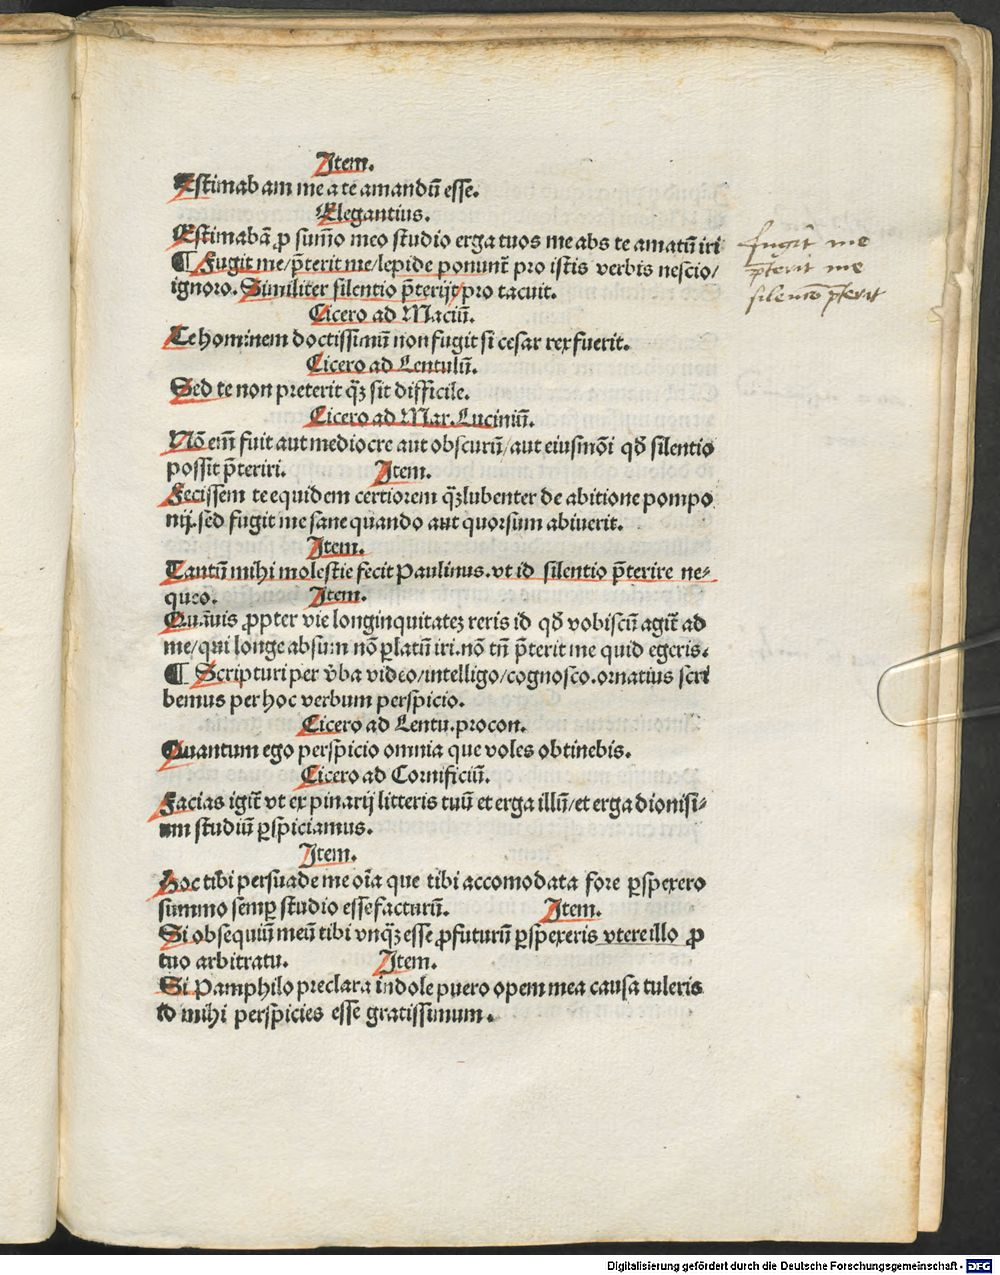 Item.
Estimabam me a te amandū esse.
Elegantius.
Estimabā ꝓ sum̄o meo studio erga tuos me abs te amatū iri
¶ Fugit me/p̄terit me/lepide ponunt᷑ pro istis verbis nescio/
ignoro. Similiter silentio p̄terijt/pro tacuit.
Cicero ad Maciū.
Te hominem doctissimū non fugit si cesar rex fuerit.
Cicero ad Lentulū.
Sed te non preterit qꝫ sit difficile.
Cicero ad Mar. Luciniū.
Nō em̄ fuit aut mediocre aut obscurū/aut eiusmōi qđ silentio
possit p̄teriri. Item.
Fecissem te equidem certiorem qꝫ lubenter de abitione pompo
nij. sed fugit me sane quando aut quorsum abiuerit.
Item.
Tantū mihi molestie fecit Paulinus. vt id silentio p̄terire ne⸗
queo. Item.
Quāuis ꝓpter vie longinquitatez reris id qđ vobiscū agit᷑ ad
me/qui longe absum nō ꝑlatū iri. nō tn̄ p̄terit me quid egeris.
¶ Scripturi per v̄ba video/intelligo/cognosco. ornatius scri
bemus per hoc verbum perspicio.
Cicero ad Lentu. procon.
Quantum ego perspicio omnia que voles obtinebis.
Cicero ad Cornificiū.
Facias igit᷑ vt ex pinarij litteris tuū et erga illū/et erga dionisi⸗
um studiū ꝑspiciamus.
Item.
Hoc tibi persuade me oīa que tibi accomodata fore ꝑspexero
summo semꝑ studio esse facturū. Item.
Si obsequiū meū tibi vnqꝫ esse ꝓfuturū ꝑspexeris vtere illo ꝓ
tuo arbitratu. Item.
Si Pamphilo preclara indole puero opem mea causa tuleris
id mihi perspicies esse gratissimum.
fugit me
p̄terit me
silentio p̄terit
Digitalisierung gefördert durch die Deutsche Forschungsgemeinschaft - DFG